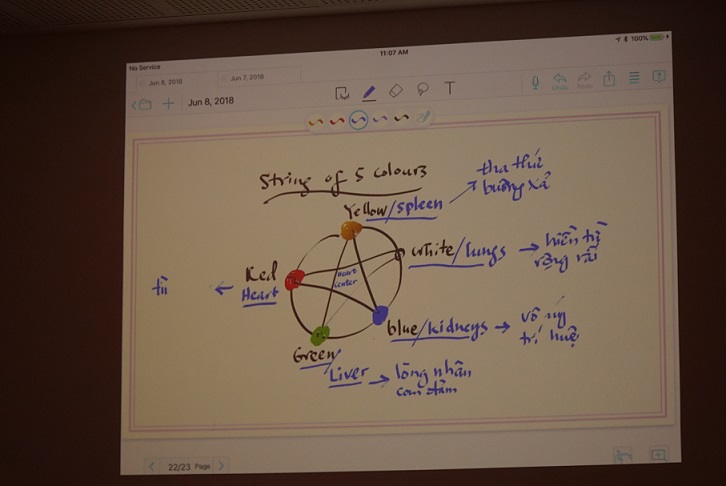 No Service
11:07 AM
100%
Jun 8, 2018
Jun 7, 2018
Jun 8, 2018
T
Undo
Redo
String of 5 colours
Yellow/spleen
tha thứ
buông xả
White/lungs
hiền từ
rộng rãi
Red
Heart
Heart
center
từ
blue/kidneys
vô ng
trí huệ
Green/
Liver
lòng nhân
can đảm
22/23 Page